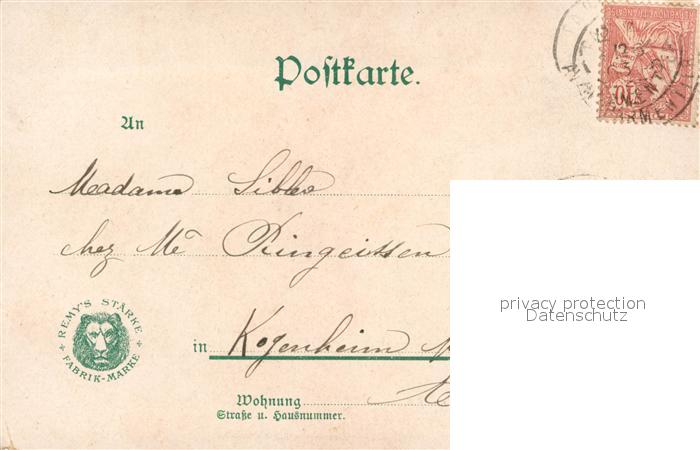 Poſtkarte.
An
Madame Sibler
chez Mᵉ Ringeissen
REMY'S STÄRKE
FABRIK-MARKE
in Kogenheim
Wohnung
Straße u. Hausnummer.
privacy protection
Datenschutz